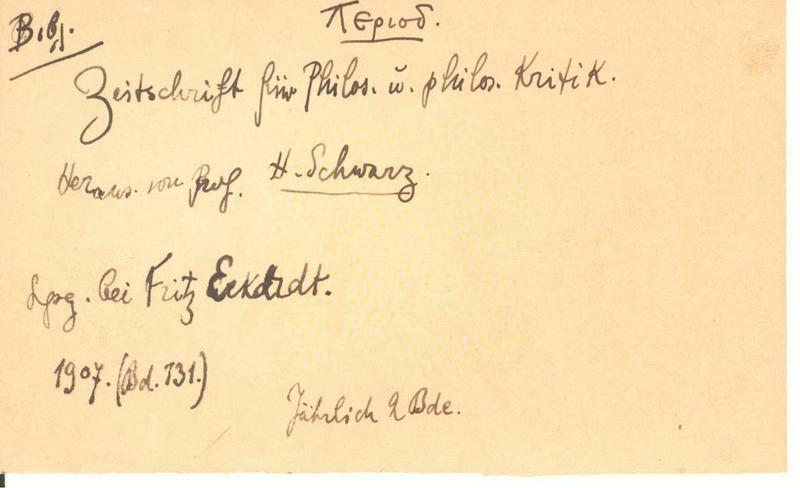 Bibl.
Περιοδ.
Zeitschrift für Philos. u. philos. Kritik.
Heraus. von Prof. H. Schwarz.
Lpzg. bei Fritz Eckardt.
1907. (Bd. 131.)
Jährlich 2 Bde.